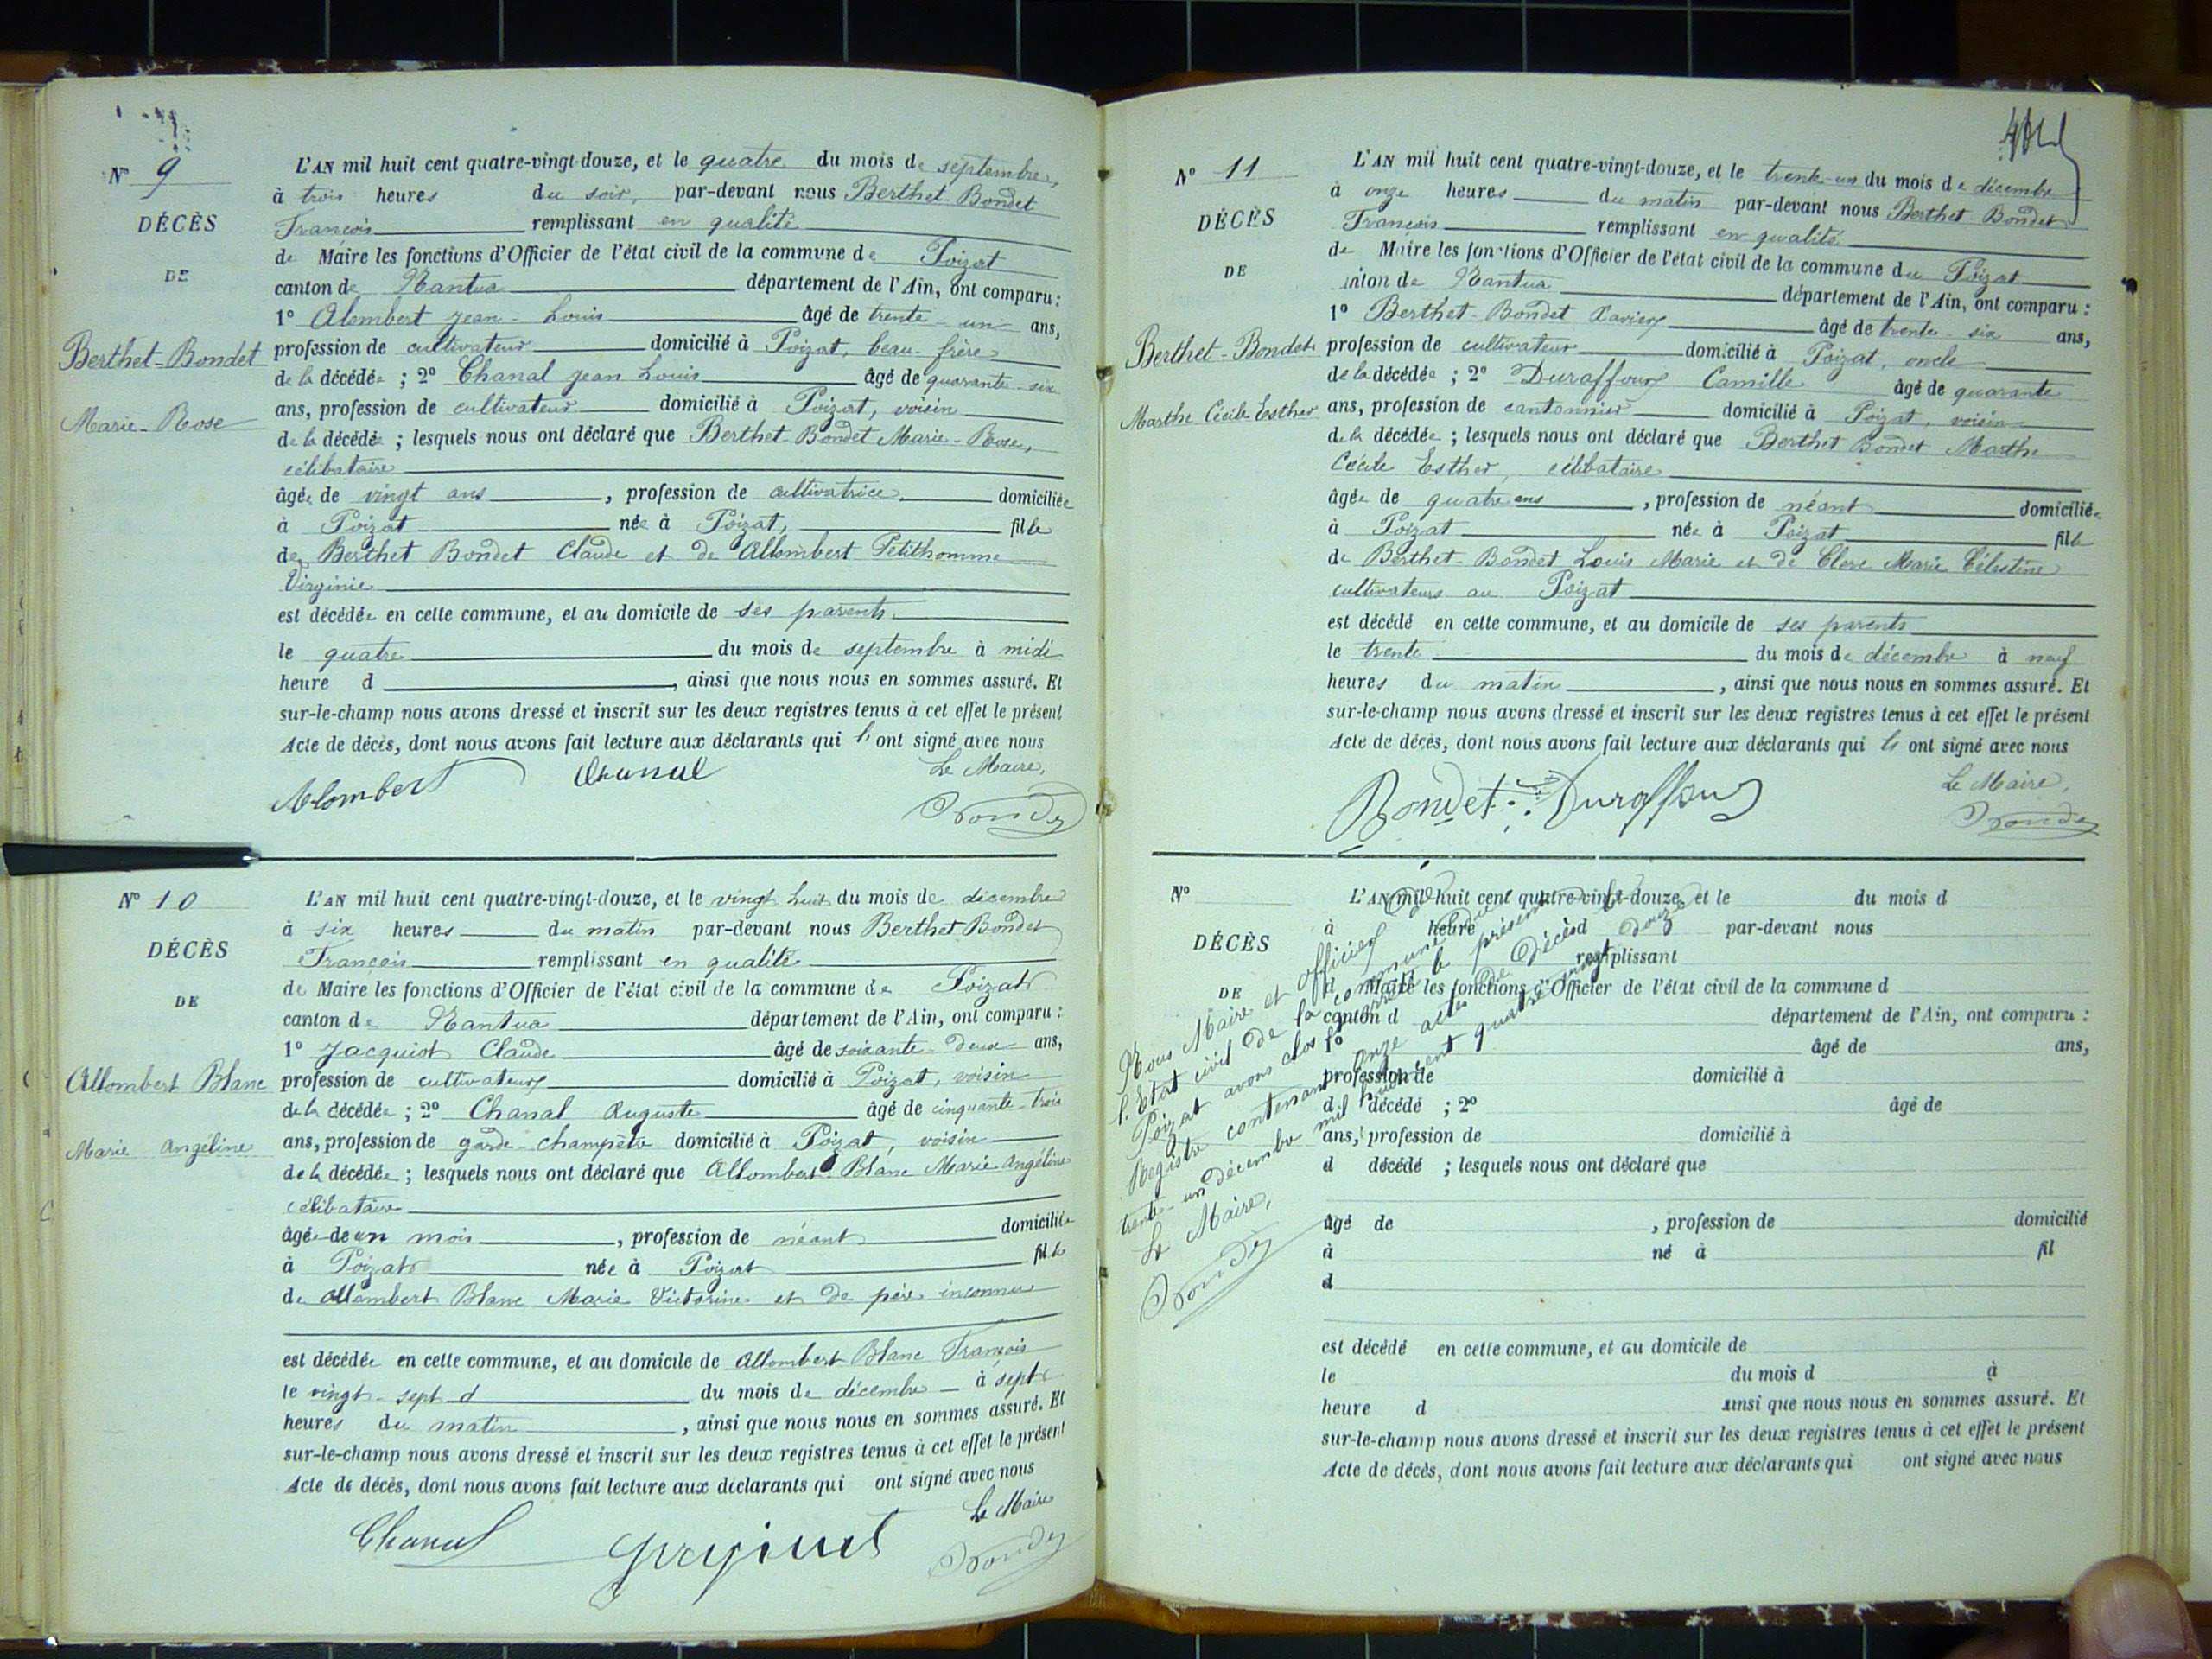 N° 9
DÉCÈS
DE
Berthet-Bondet
Marie-Rose
L'AN mil huit cent quatre-vingt-douze, et le quatre du mois de septembre,
à trois heures du soir, par-devant nous Berthet-Bondet
François remplissant en qualité
de Maire les fonctions d'Officier de l'état civil de la commune de Poizat
canton de Nantua département de l'Ain, ont comparu :
1° Alombert Jean-Louis âgé de trente-un ans,
profession de cultivateur domicilié à Poizat, beau-frère
de la décédée ; 2° Chanal Jean Louis âgé de quarante-six
ans, profession de cultivateur domicilié à Poizat, voisin
de la décédée ; lesquels nous ont déclaré que Berthet-Bondet Marie-Rose,
célibataire
âgée de vingt ans, profession de cultivatrice domiciliée
à Poizat née à Poizat, fille
de Berthet Bondet Claude et de Allombert Petithomme
Virginie
est décédée en cette commune, et au domicile de ses parents
le quatre du mois de septembre à midi
heure d , ainsi que nous nous en sommes assuré. Et
sur-le-champ nous avons dressé et inscrit sur les deux registres tenus à cet effet le présent
Acte de décès, dont nous avons fait lecture aux déclarants qui ont signé avec nous
Le Maire,
Alombert Chanal Bondet
N° 10
DÉCÈS
DE
Allombert Blanc
Marie Angéline
L'AN mil huit cent quatre-vingt-douze, et le vingt huit du mois de décembre
à six heures du matin par-devant nous Berthet Bondet
François remplissant en qualité
de Maire les fonctions d'Officier de l'état civil de la commune de Poizat
canton de Nantua département de l'Ain, ont comparu :
1° Jacquiot Claude âgé de soixante-deux ans,
profession de cultivateur domicilié à Poizat, voisin
de la décédée ; 2° Chanal Auguste âgé de cinquante-trois
ans, profession de garde-champêtre domicilié à Poizat, voisin
de la décédée ; lesquels nous ont déclaré que Allombert Blanc Marie Angéline
célibataire
âgée de un mois, profession de néant domiciliée
à Poizat née à Poizat fille
de Allombert Blanc Marie Victorine et de père inconnu
est décédée en cette commune, et au domicile de Allombert Blanc François
le vingt-sept d du mois de décembre à sept
heures du matin, ainsi que nous nous en sommes assuré. Et
sur-le-champ nous avons dressé et inscrit sur les deux registres tenus à cet effet le présent
Acte de décès, dont nous avons fait lecture aux déclarants qui ont signé avec nous
Le Maire
Chanal Bondet
N° 11
DÉCÈS
DE
Berthet-Bondet
Marthe Cécile Esther
L'AN mil huit cent quatre-vingt-douze, et le trente-un du mois de décembre
à onze heures du matin par-devant nous Berthet Bondet
François remplissant en qualité
de Maire les fonctions d'Officier de l'état civil de la commune du Poizat
canton de Nantua département de l'Ain, ont comparu :
1° Berthet-Bondet Xavier âgé de trente-six ans,
profession de cultivateur domicilié à Poizat, oncle
de la décédée ; 2° Duraffour Camille âgé de quarante
ans, profession de cantonnier domicilié à Poizat, voisin
de la décédée ; lesquels nous ont déclaré que Berthet Bondet Marthe
Cécile Esther, célibataire
âgée de quatre ans, profession de néant domiciliée
à Poizat née à Poizat fille
de Berthet-Bondet Louis Marie et de Clerc Marie Célestine
cultivateurs au Poizat
est décédé en cette commune, et au domicile de ses parents
le trente du mois de décembre à neuf
heures du matin, ainsi que nous nous en sommes assuré. Et
sur-le-champ nous avons dressé et inscrit sur les deux registres tenus à cet effet le présent
Acte de décès, dont nous avons fait lecture aux déclarants qui ont signé avec nous
Le Maire,
Bondet Duraffour Bondet
N°
DÉCÈS
DE
L'AN mil huit cent quatre-vingt-douze, et le du mois d
à heure d par-devant nous
remplissant
d Maire les fonctions d'Officier de l'état civil de la commune d
canton d département de l'Ain, ont comparu :
1° âgé de ans,
profession de domicilié à
d décédé ; 2° âgé de
ans, profession de domicilié à
d décédé ; lesquels nous ont déclaré que
âgé de , profession de domicilié
à né à fil
d
est décédé en cette commune, et au domicile de
le du mois d à
heure d ainsi que nous nous en sommes assuré. Et
sur-le-champ nous avons dressé et inscrit sur les deux registres tenus à cet effet le présent
Acte de décès, dont nous avons fait lecture aux déclarants qui ont signé avec nous
Nous Maire et Officier de
l'Etat civil de la commune du
Poizat avons clos et arrêté le présent
Registre contenant onze actes de Décès
trente-un décembre mil huit cent quatre-vingt douze
Le Maire,
Bondet